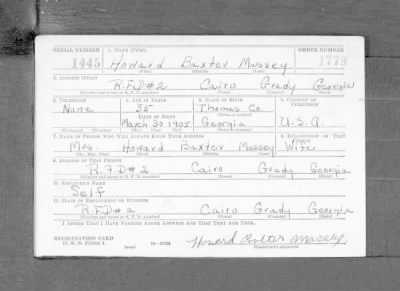 SERIAL NUMBER 1. NAME (Print) ORDER NUMBER
1445 Howard Baxter Massey 1779
(First) (Middle) (Last)
2. ADDRESS (Print)
R.F.D#2 Cairo Grady Georgia
(Number and street or R. F. D. number) (Town) (County) (State)
3. TELEPHONE 4. AGE IN YEARS 5. PLACE OF BIRTH 6. COUNTRY OF CITIZENSHIP
None 35 Thomas Co.
DATE OF BIRTH (Town or county)
March 30 1905 Georgia U.S.A.
(Mo.) (Day) (Yr.) (State or country)
7. NAME OF PERSON WHO WILL ALWAYS KNOW YOUR ADDRESS 8. RELATIONSHIP OF THAT PERSON
Mrs Howard Baxter Massey Wife
(Mr., Mrs., Miss) (First) (Middle) (Last)
9. ADDRESS OF THAT PERSON
R.F.D#2 Cairo Grady Georgia
(Number and street or R. F. D. number) (Town) (County) (State)
10. EMPLOYER'S NAME
Self
11. PLACE OF EMPLOYMENT OR BUSINESS
R.F.D#2 Cairo Grady Georgia
(Number and street or R. F. D. number) (Town) (County) (State)
I AFFIRM THAT I HAVE VERIFIED ABOVE ANSWERS AND THAT THEY ARE TRUE.
REGISTRATION CARD
D. S. S. Form 1 (over) Howard Baxter Massey
(Registrant's signature)